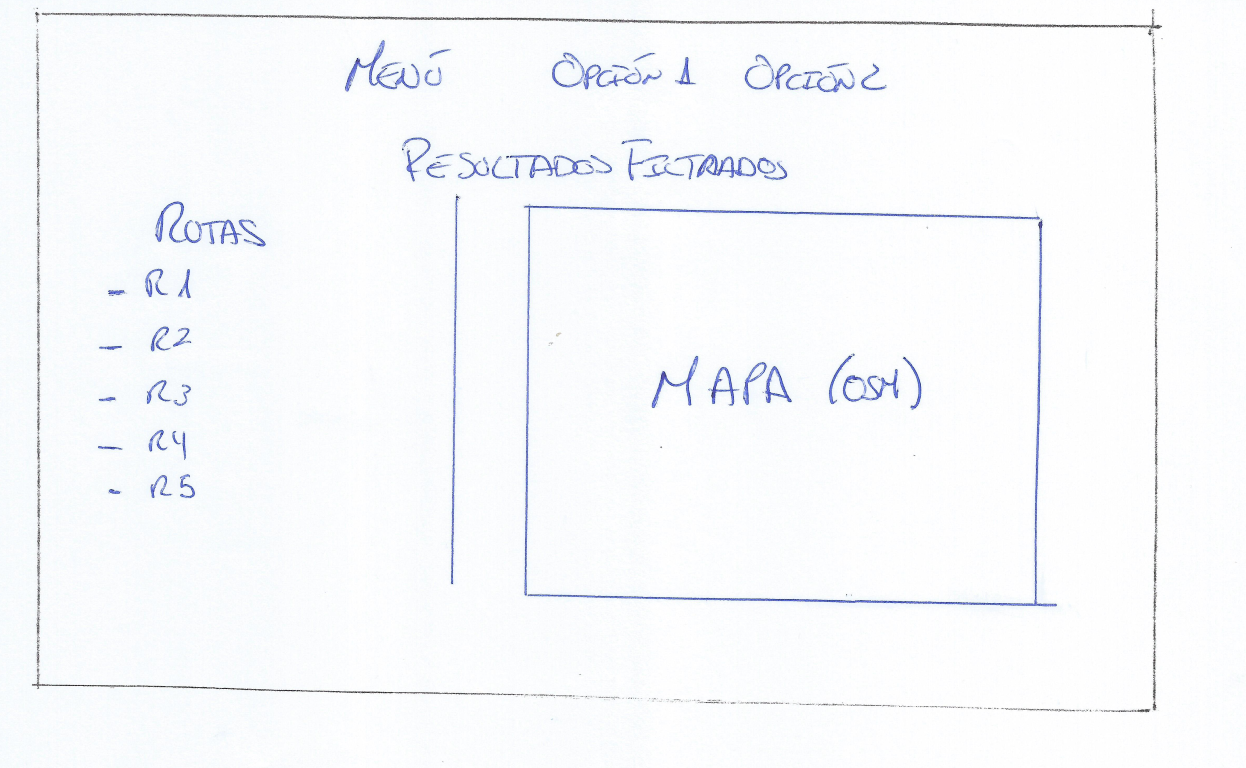 MENÚ OPCIÓN 1 OPCIÓN 2
RESULTADOS FILTRADOS
ROTAS
- R1
- R2
- R3
- R4
- R5
MAPA (OSM)